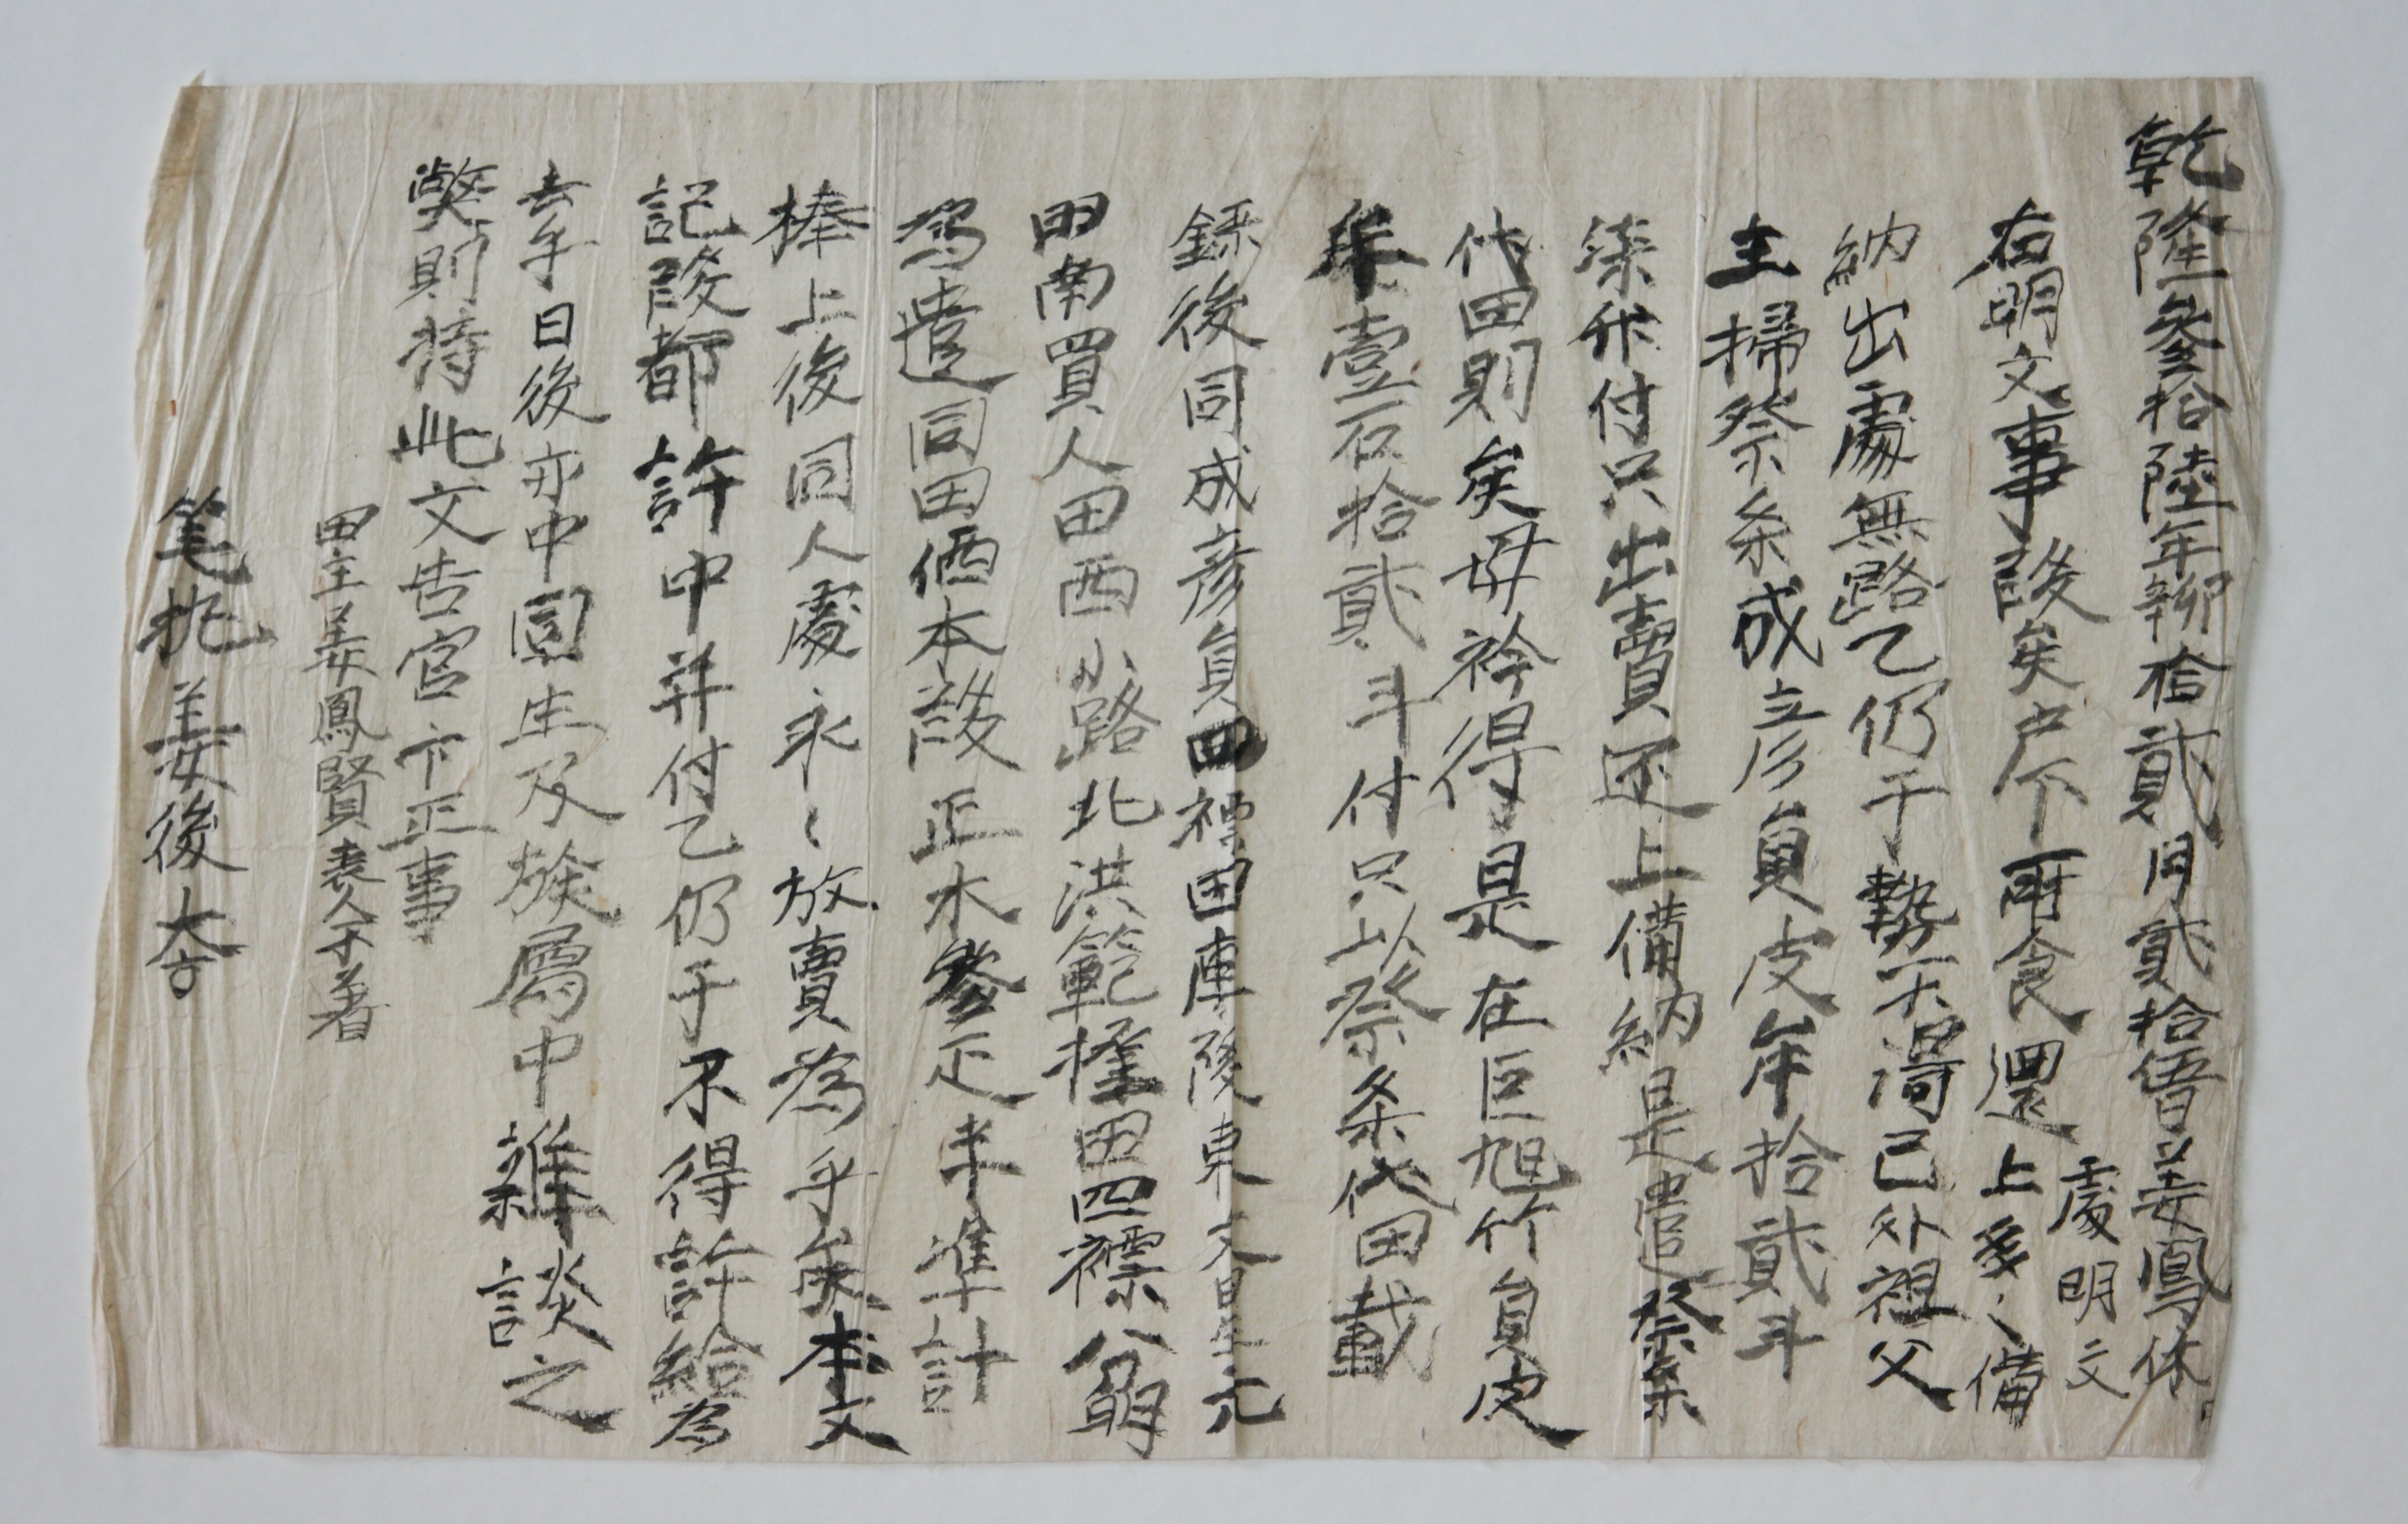 乾隆叁拾陸年辛卯拾貳月貳拾伍日姜鳳休
處明文
右明文事段矣户下所食還上多〻備
納出處無路乙仍于勢不得已外祖父
主掃祭条成立彦員皮牟拾貳斗
柒升付只出賣還上備納是遣祭条
代田則矣母衿得是在巨旭竹員皮
牟壹石拾貳斗付只以祭条代田載
錄後同成彦員田標田庫段東文星元
田南買人田西小路北洪範擇田四標分明
為遣同田価本段正木參疋牟準計
捧上後同人處永〻放賣為乎矣本文
記段都許中并付乙仍于不得許給為
去乎日後亦中同生及族屬中雜談之
弊則持此文告官卞正事
田主姜鳳賢喪人不着
筆執姜後大